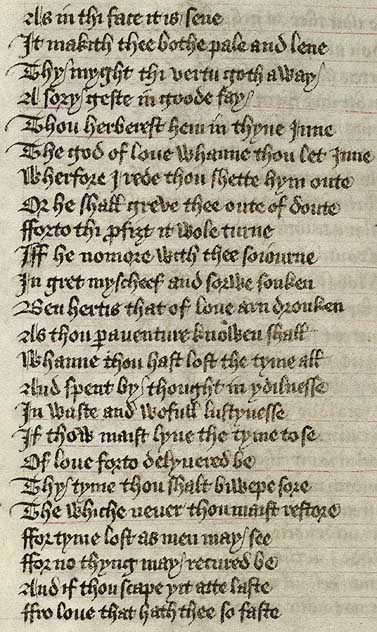 As in thi face it is sene
It makith thee bothe pale and lene
Thy myght thi vertu goth away
A sory geste in goode fay
Thou herberest hem in thyne Inne
The god of loue whanne thou let Inne
Wherfore I rede thou shette hym oute
Or he shall greve thee oute of doute
fforto thi profizt it wole turne
Iff he nomore with thee soiourne
In gret myscheef and sorwe sonken
Ben hertis that of loue arn dronken
As thou paraventure knowen shall
Whanne thou hast lost the tyme all
And spent by thought in ydilnesse
In waste and wofull lustynesse
If thow maist lyue the tyme to se
Of loue forto delyuered be
Thy tyme thou shalt biwepe sore
The whiche neuer thou maist restore
ffor tyme lost as men may see
ffor no thyng may recured be
And if thou scape yit atte laste
ffro loue that hath thee so faste